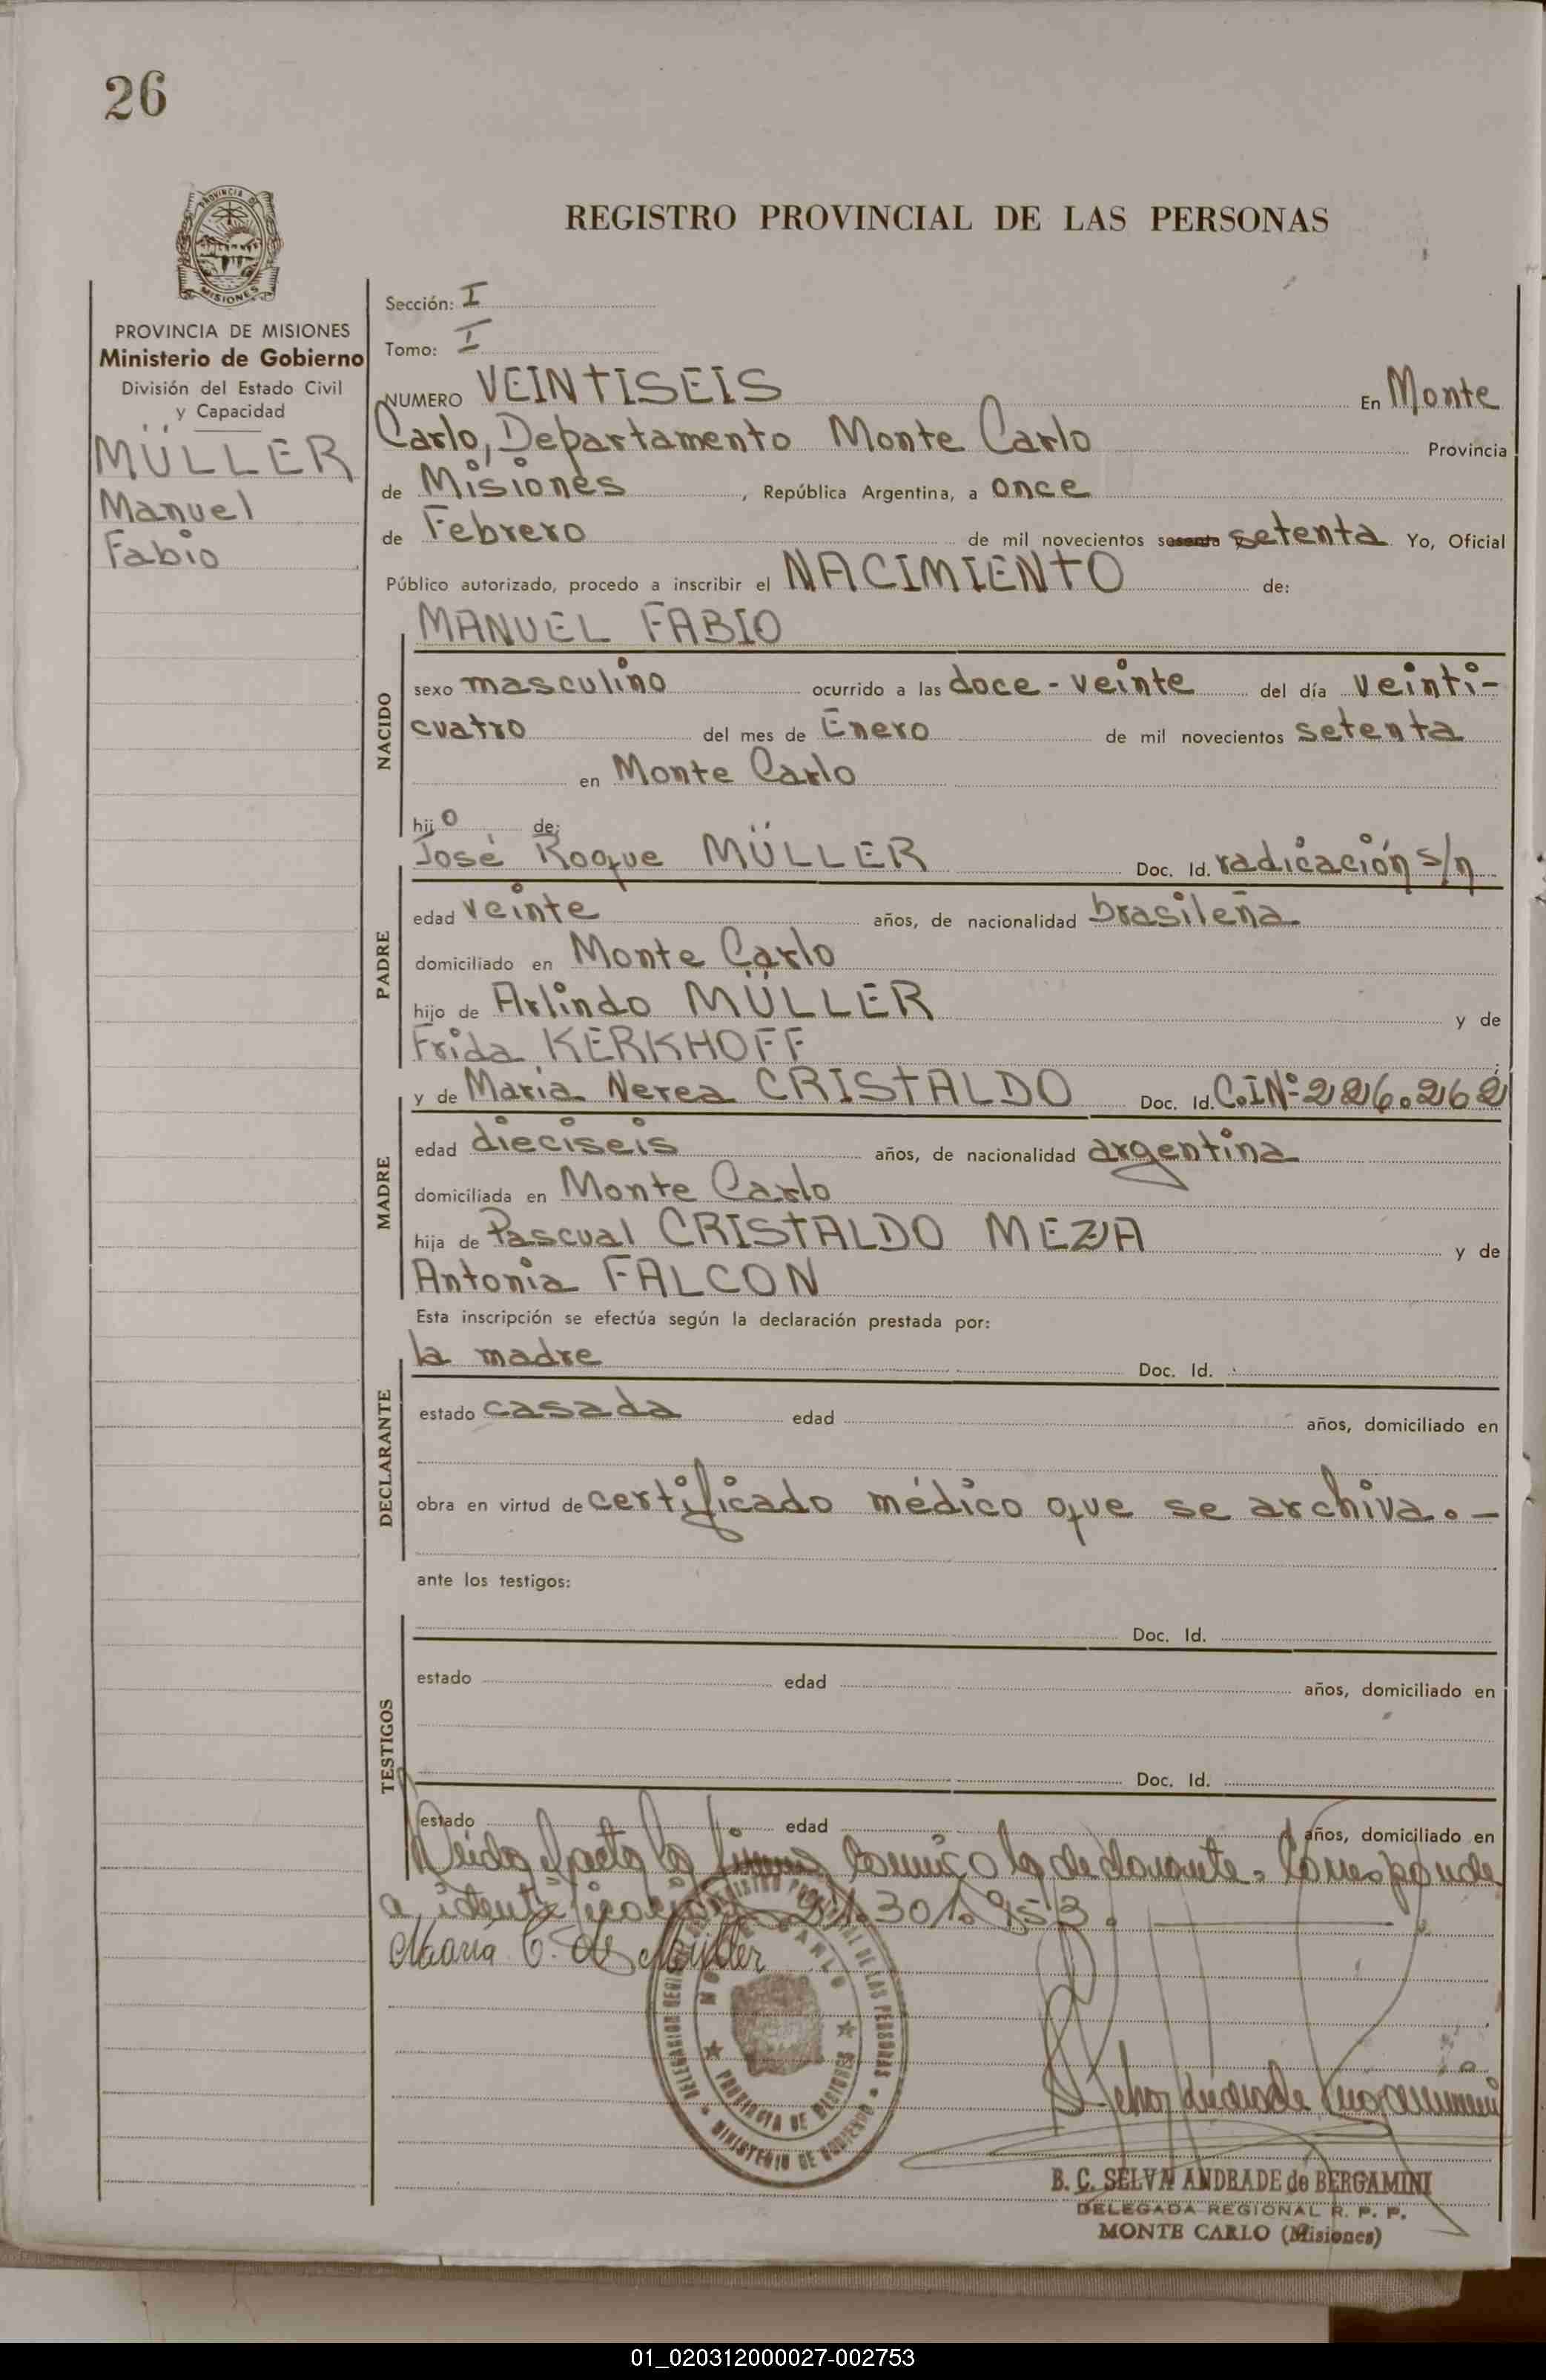 26
PROVINCIA DE
MISIONES
REGISTRO PROVINCIAL DE LAS PERSONAS
PROVINCIA DE MISIONES
Ministerio de Gobierno
División del Estado Civil
y Capacidad
MÜLLER
Manuel
Fabio
Sección: I
Tomo: I
NUMERO VEINTISEIS En Monte
Carlo, Departamento Monte Carlo Provincia
de Misiones, República Argentina, a once
de Febrero de mil novecientos sesenta setenta Yo, Oficial
Público autorizado, procedo a inscribir el NACIMIENTO de:
NACIDO
MANUEL FABIO
sexo masculino ocurrido a las doce - veinte del día veinti-
cuatro del mes de Enero de mil novecientos setenta
en Monte Carlo
hijo de:
PADRE
José Roque MÜLLER Doc. Id. radicación s/n
edad veinte años, de nacionalidad brasileña
domiciliado en Monte Carlo
hijo de Arlindo MÜLLER y de
Frida KERKHOFF
MADRE
y de María Nerea CRISTALDO Doc. Id. C.I Nº 226.262
edad dieciseis años, de nacionalidad argentina
domiciliada en Monte Carlo
hija de Pascual CRISTALDO MEZA y de
Antonia FALCON
Esta inscripción se efectúa según la declaración prestada por:
DECLARANTE
la madre Doc. Id.
estado casada edad años, domiciliado en
obra en virtud de certificado médico que se archiva.-
ante los testigos:
TESTIGOS
Doc. Id.
estado edad años, domiciliado en
Doc. Id.
estado edad años, domiciliado en
Leida el acta la firma conmigo la declarante. Corresponde
a identificación 21.301.953.
María C. de Müller
MONTE CARLO
PROVINCIA DE MISIONES
MINISTERIO DE GOBIERNO
B. C. SELVA ANDRADE de BERGAMINI
DELEGADA REGIONAL R. P. P.
MONTE CARLO (Misiones)
01_020312000027-002753